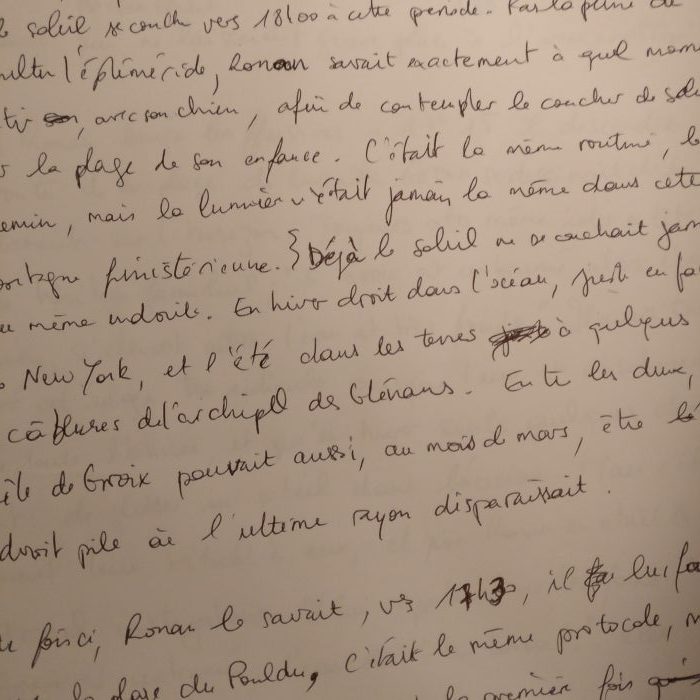 soleil se couche vers 18h00 à cette période. Par la peine de
l'éphéméride, Ronan savait exactement à quel mom
, avec son chien, afin de contempler le coucher de sole
la plage de son enfance. C'était la même routine, le
emin, mais la lumière n'était jamais la même dans cette
finistérienne. Déjà le soleil ne se couchait jam
même endroit. En hiver droit dans l'océan, juste en fa
New York, et l'été dans les terres à quelques
câblures de l'archipel des Glénans. Entre les deux,
île de Groix pouvait aussi, au mois de mars, être
droit pile où l'ultime rayon disparaissait.
fois ci, Ronan le savait, vers il lui fa
la plage du Pouldu, c'était le même protocole, m
la première fois